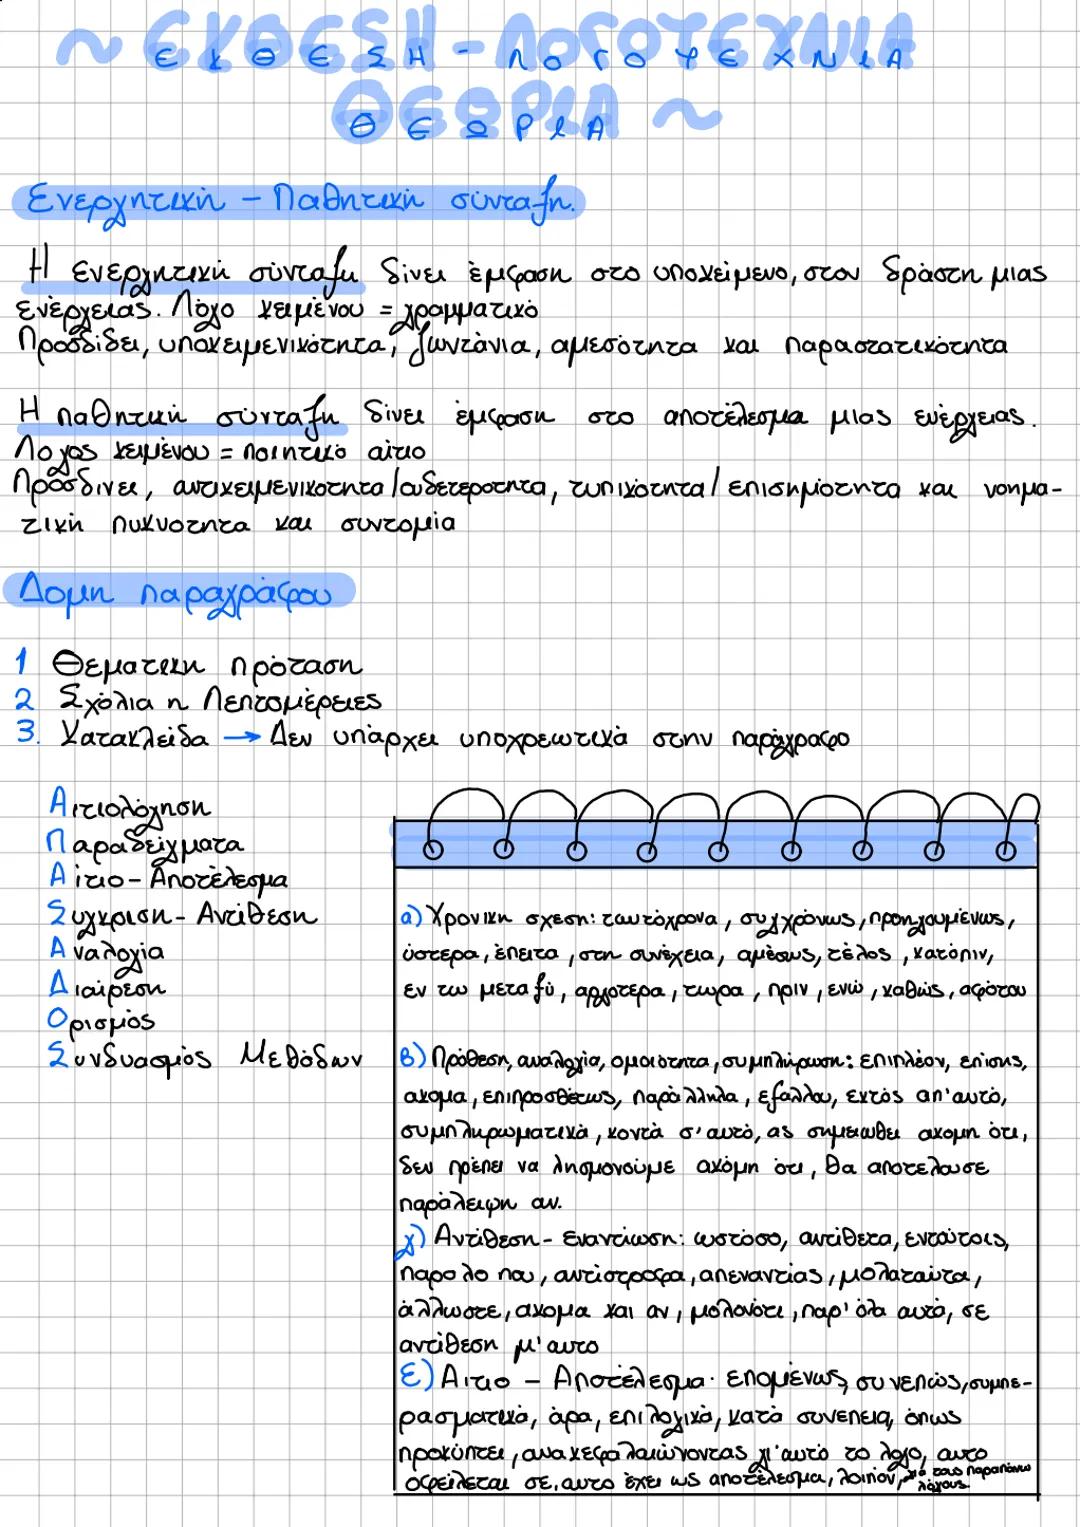 ~ ΕΚΘΕΣΗ - ΛΟΓΟΤΕΧΝΙΑ
ΘΕΩΡΙΑ ~
Ενεργητική - Παθητική σύνταξη.
Η ενεργητική σύνταξη δίνει έμφαση στο υποκείμενο, στον δράστη μιας
ενέργειας. Λόγο κειμένου = γραμματικό
Προσδίδει, υποκειμενικότητα, ζωντάνια, αμεσότητα και παραστατικότητα
Η παθητική σύνταξη δίνει έμφαση στο αποτέλεσμα μιας ενέργειας.
Λογος κειμένου = ποιητικό αίτιο
Προσδίνει, αντικειμενικότητα/ουδετερότητα, τυπικότητα/επισημότητα και νοημα-
τική πυκνοτητα και συντομία
Δομη παραγράφου
1 Θεματικη πρόταση
2 Σχόλια η Λεπτομέρειες
3. Κατακλείδα → Δεν υπάρχει υποχρεωτικά στην παράγραφο
Αιτιολόγηση
Παραδείγματα
Αίτιο - Αποτέλεσμα
Συγκριση - Αντίθεση
Αναλογία
Διαίρεση
Ορισμός
Συνδυασμός Μεθόδων
α) Χρονικη σχεση: ταυτόχρονα, συγχρόνως, προηγουμένως,
ύστερα, έπειτα, στη συνέχεια, αμέσως, τέλος, κατόπιν,
εν τω μεταξύ, αργότερα, τωρα, πριν, ενώ, καθώς, αφότου
β) Πρόθεση, αναλογία, ομοιότητα, συμπλήρωση: επιπλέον, επίσης,
ακομα, επιπροσθέτως, παράλληλα, εξάλλου, εκτός απ'αυτό,
συμπληρωματικά, κοντά σ'αυτό, ας σημειωθει ακομη ότι,
δεν πρέπει να λησμονούμε ακόμη ότι, θα αποτελουσε
παράλειψη αν.
γ) Αντίθεση - Εναντίωση: ωστόσο, αντίθετα, εντούτοις,
παρολο που, αντίστροφα, απεναντίας, μολαταύτα,
άλλωστε, ακομα και αν, μολονότι, παρ' όλα αυτά, σε
αντίθεση μ'αυτο
ε) Αιτιο - Αποτέλεσμα· επομένως, συνεπώς, συμπε-
ρασματικά, άρα, επιλογικά, κατά συνεπεια, όπως
προκύπτει, ανακεφαλαιώνοντας γι'αυτό το λόγο, αυτο
οφείλεται σε, αυτο έχει ως αποτέλεσμα, λοιπόν, για τους παραπάνω
λόγους.